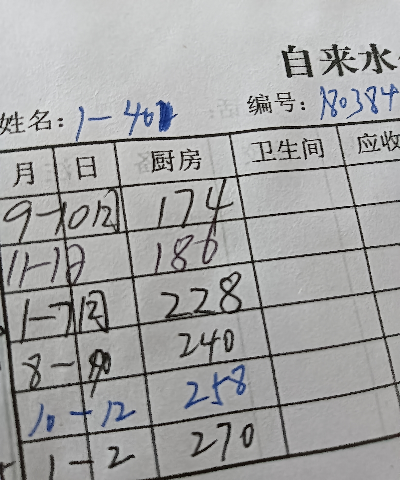 自来水
姓名：1-401 编号：180384
月 日 厨房 卫生间 应收
9-10月 174
11-1月 186
1-7月 228
8- 240
10-12 258
1-2 270